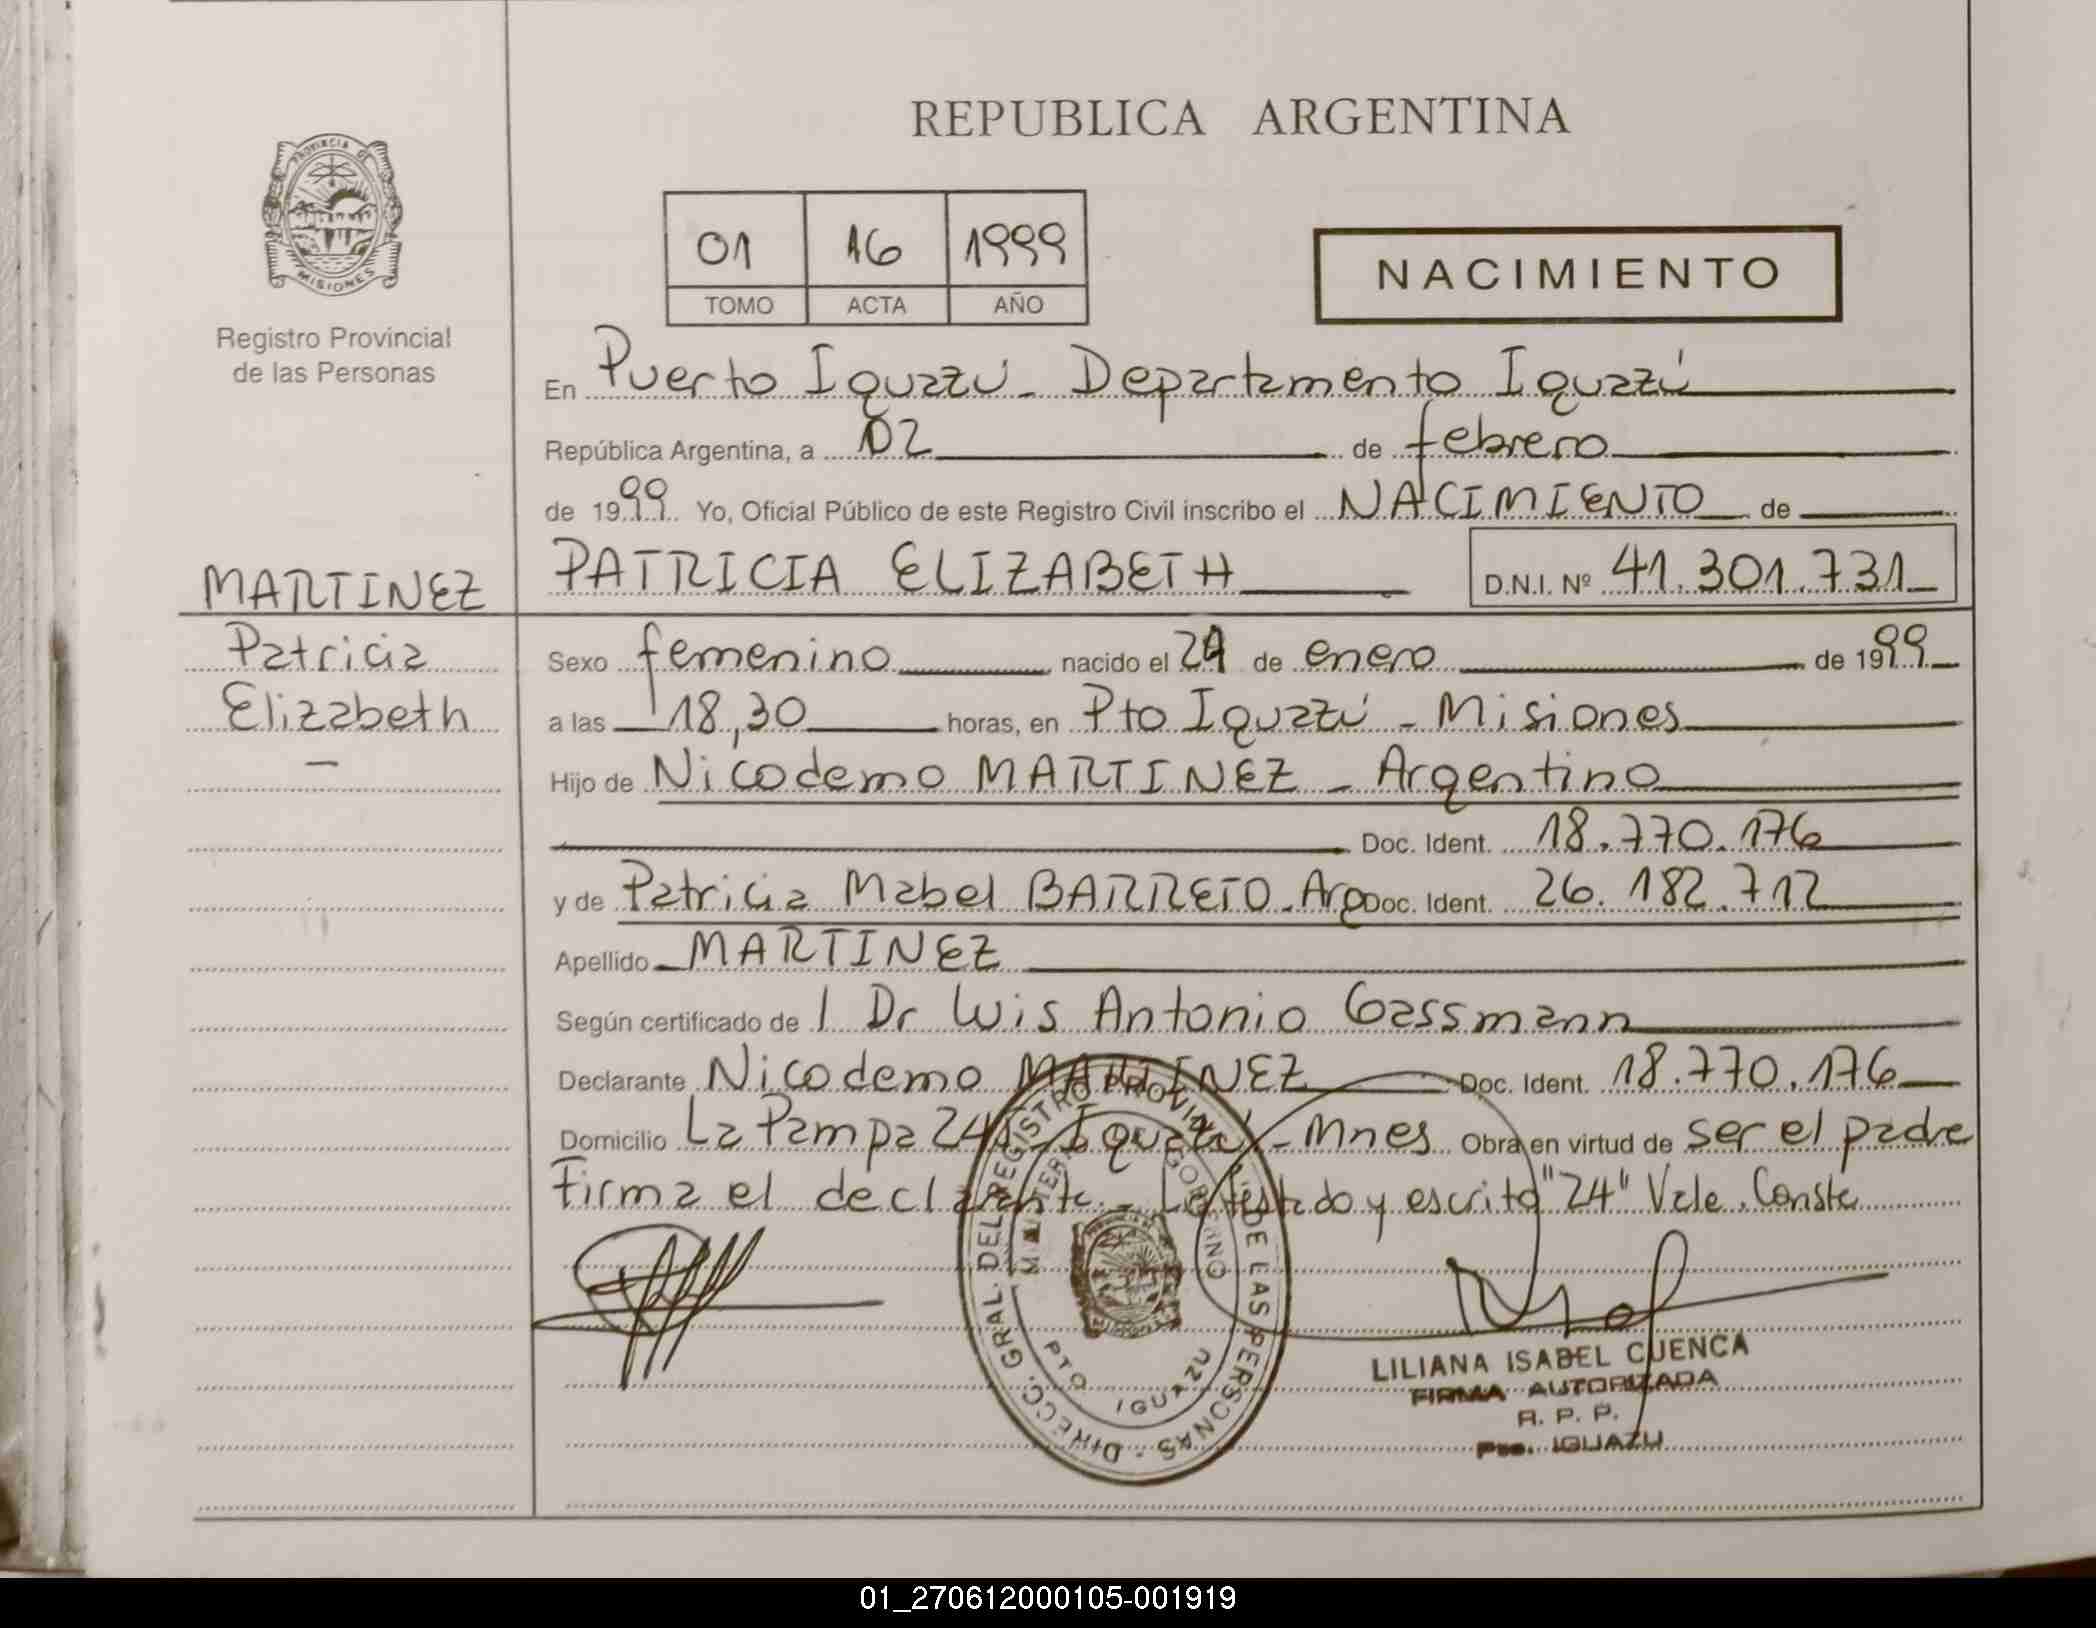 REPUBLICA ARGENTINA
PROVINCIA DE MISIONES
Registro Provincial
de las Personas
01 16 1999
TOMO ACTA AÑO
NACIMIENTO
En Puerto Iguazú - Departamento Iguazú
República Argentina, a 02 de febrero
de 1999 Yo, Oficial Público de este Registro Civil inscribo el NACIMIENTO de
MARTINEZ PATRICIA ELIZABETH D.N.I. Nº 41.301.731
Patricia Sexo femenino nacido el 24 de enero de 1999
Elizabeth a las 18,30 horas, en Pto Iguazú - Misiones
Hijo de Nicodemo MARTINEZ - Argentino
Doc. Ident. 18.770.176
y de Patricia Mabel BARRETO - Arg Doc. Ident. 26.182.712
Apellido MARTINEZ
Según certificado de Dr Luis Antonio Gassmann
Declarante Nicodemo MARTINEZ Doc. Ident. 18.770.176
Domicilio La Pampa Iguazú - Mnes Obra en virtud de ser el padre
Firma el declarante - Lo testado y escrito "24" Vale. Conste
DIRECC. GRAL. DEL REGISTRO PROVINCIAL DE LAS PERSONAS
PTO IGUAZU
LILIANA ISABEL CUENCA
FIRMA AUTORIZADA
R. P. P.
Pto. IGUAZU
01_270612000105-001919